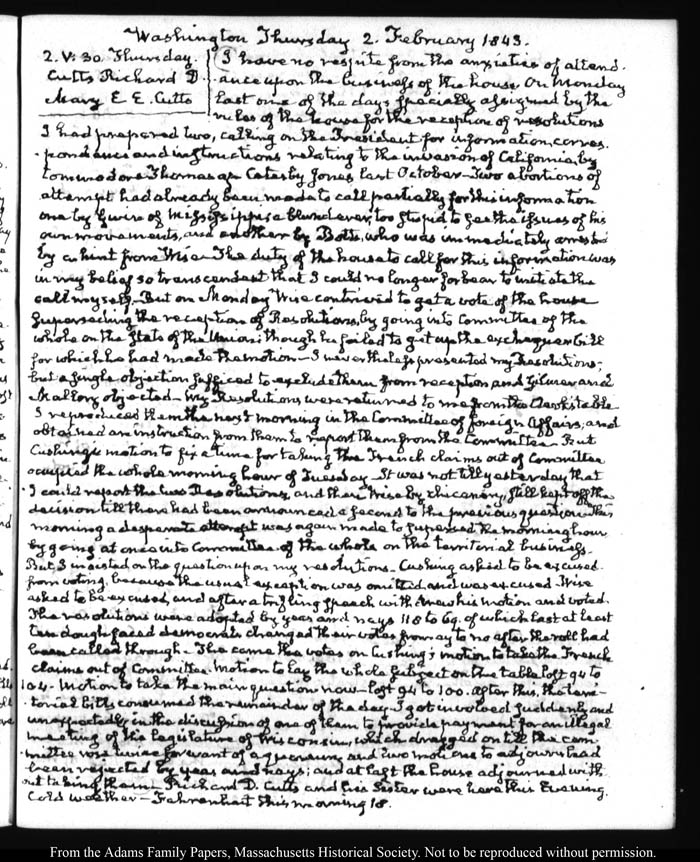 Washington Thursday 2. February 1843.
2. V: 30. Thursday.
Cutts Richard D
Mary E E. Cutts
I have no respite from the anxieties of attend-
ance upon the business of the house On Monday
last one of the days specially assigned by the
rules of the house for the reception of resolutions
I had prepared two, calling on the President for information, corres-
pondence and instructions relating to the invasion of California, by
Commodore Thomas ap Catesby Jones, last October – Two abortions of
attempt had already been made to call partially for this information
one by Gwin of Mississippi a blunderer, too stupid to see the issues of his
own movements, and another by Botts, who was immediately arrested
by a hint from Wise – The duty of the house to call for this information was
in my belief so transcendent that I could no longer forbear to initiate the
call myself. But on Monday Wise contrived to get a vote of the house
superseding the reception of Resolutions, by going into Committee of the
whole on the State of the Union; though he failed to get up the exchequer bill
for which he had made the motion – I nevertheless presented my Resolutions;
but a single objection sufficed to exclude them from reception and Gilmer and
Mallory objected – My Resolutions were returned to me from the Clerk's table
I reproduced them the next morning in the Committee of foreign Affairs, and
obtained an instruction from them to report them from the Committee – But
Cushing's motion to fix a time for taking the French claims out of Committee
occupied the whole morning hour of Tuesday – It was not till yesterday that
I could report the two Resolutions, and then Wise by chicanery, still kept off the
decision till there had been announced a second to the previous question – This
morning a desperate attempt was again made to supersede the morning hour
by going at once into Committee of the whole on the territorial business.
But I insisted on the question upon my resolutions. Cushing asked to be excused
from voting, because the usual exception was omitted, and was excused. Wise
asked to be excused, and after a trifling speech withdrew his motion and voted.
The resolutions were adopted by yeas and nays 118 to 69. of which last at least
ten doughfaced democrats changed their votes from ay to no after the roll had
been called through – The came the votes on Cushing's motion to take the French
claims out of Committee. Motion to lay the whole subject on the table lost 94 to
104 – Motion to take the main question now – lost 94 to 100. After this, the terri-
torial bills consumed the remainder of the day. I got involved suddenly and
unexpectedly in the discussion of one of them to provide payment for an illegal
meeting of the legislature of Wisconsin, which dragged on till the com-
mittee rose twice for want of a quorum, and two motions to adjourn had
been rejected by yeas and nays; and at last the house adjourned with-
out taking them. Richard D. Cutts and his Sister were here this Evening.
Cold weather – Fahrenheit this morning 18.
From the Adams Family Papers, Massachusetts Historical Society. Not to be reproduced without permission.